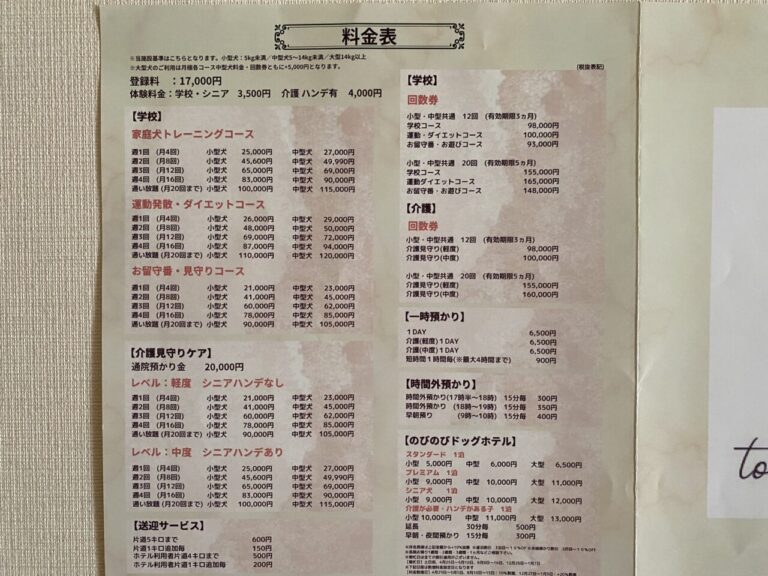 料金表
※当施設基準はこちらとなります。小型犬：5kg未満／中型犬5～14kg未満／大型14kg以上
※大型犬のご利用は月極各コース中型犬料金・回数券ともに+5,000円となります。
(税抜表記)
登録料　：17,000円
体験料金：学校・シニア　3,500円　介護 ハンデ有　4,000円
【学校】
家庭犬トレーニングコース
週1回　(月4回)　小型犬　25,000円　中型犬　27,000円
週2回　(月8回)　小型犬　45,600円　中型犬　49,990円
週3回　(月12回)　小型犬　65,000円　中型犬　69,000円
週4回　(月16回)　小型犬　83,000円　中型犬　90,000円
通い放題 (月20回まで)　小型犬　100,000円　中型犬　115,000円
運動発散・ダイエットコース
週1回　(月4回)　小型犬　26,000円　中型犬　29,000円
週2回　(月8回)　小型犬　48,000円　中型犬　50,000円
週3回　(月12回)　小型犬　69,000円　中型犬　72,000円
週4回　(月16回)　小型犬　87,000円　中型犬　94,000円
通い放題 (月20回まで)　小型犬　110,000円　中型犬　120,000円
お留守番・見守りコース
週1回　(月4回)　小型犬　21,000円　中型犬　23,000円
週2回　(月8回)　小型犬　41,000円　中型犬　45,000円
週3回　(月12回)　小型犬　60,000円　中型犬　62,000円
週4回　(月16回)　小型犬　78,000円　中型犬　85,000円
通い放題 (月20回まで)　小型犬　90,000円　中型犬　105,000円
【介護見守りケア】
通院預かり金　20,000円
レベル：軽度　シニアハンデなし
週1回　(月4回)　小型犬　21,000円　中型犬　23,000円
週2回　(月8回)　小型犬　41,000円　中型犬　45,000円
週3回　(月12回)　小型犬　60,000円　中型犬　62,000円
週4回　(月16回)　小型犬　78,000円　中型犬　85,000円
通い放題 (月20回まで)　小型犬　90,000円　中型犬　105,000円
レベル：中度　シニアハンデあり
週1回　(月4回)　小型犬　25,000円　中型犬　27,000円
週2回　(月8回)　小型犬　45,600円　中型犬　49,990円
週3回　(月12回)　小型犬　65,000円　中型犬　69,000円
週4回　(月16回)　小型犬　83,000円　中型犬　90,000円
通い放題 (月20回まで)　小型犬　100,000円　中型犬　115,000円
【送迎サービス】
片道5キロまで　600円
片道1キロ追加毎　150円
ホテル利用者片道4キロまで　500円
ホテル利用者片道1キロ追加毎　200円
【学校】
回数券
小型・中型共通　12回　(有効期限3ヵ月)
学校コース　98,000円
運動・ダイエットコース　100,000円
お留守番・お遊びコース　93,000円
小型・中型共通　20回　(有効期限5ヵ月)
学校コース　155,000円
運動ダイエットコース　165,000円
お留守番・お遊びコース　148,000円
【介護】
回数券
小型・中型共通　12回　(有効期限3ヵ月)
介護見守り(軽度)　98,000円
介護見守り(中度)　100,000円
小型・中型共通　20回　(有効期限5ヵ月)
介護見守り(軽度)　155,000円
介護見守り(中度)　160,000円
【一時預かり】
1DAY　6,500円
介護(軽度) 1DAY　6,500円
介護(中度) 1DAY　6,500円
短時間1時間毎(※最大4時間まで)　900円
【時間外預かり】
時間外預かり(17時半～18時)　15分毎　300円
時間外預かり　(18時～19時)　15分毎　350円
早朝預り　(9時～10時)　15分毎　400円
【のびのびドッグホテル】
スタンダード　1泊
小型　5,000円　中型　6,000円　大型　6,500円
プレミアム　1泊
小型　9,000円　中型　10,000円　大型　11,000円
シニア犬　1泊
小型　9,000円　中型　10,000円　大型　12,000円
介護が必要・ハンデがある子　1泊
小型 10,000円　中型　11,000円　大型　13,000円
延長　30分毎　500円
早朝・夜間預かり　15分毎　300円
to